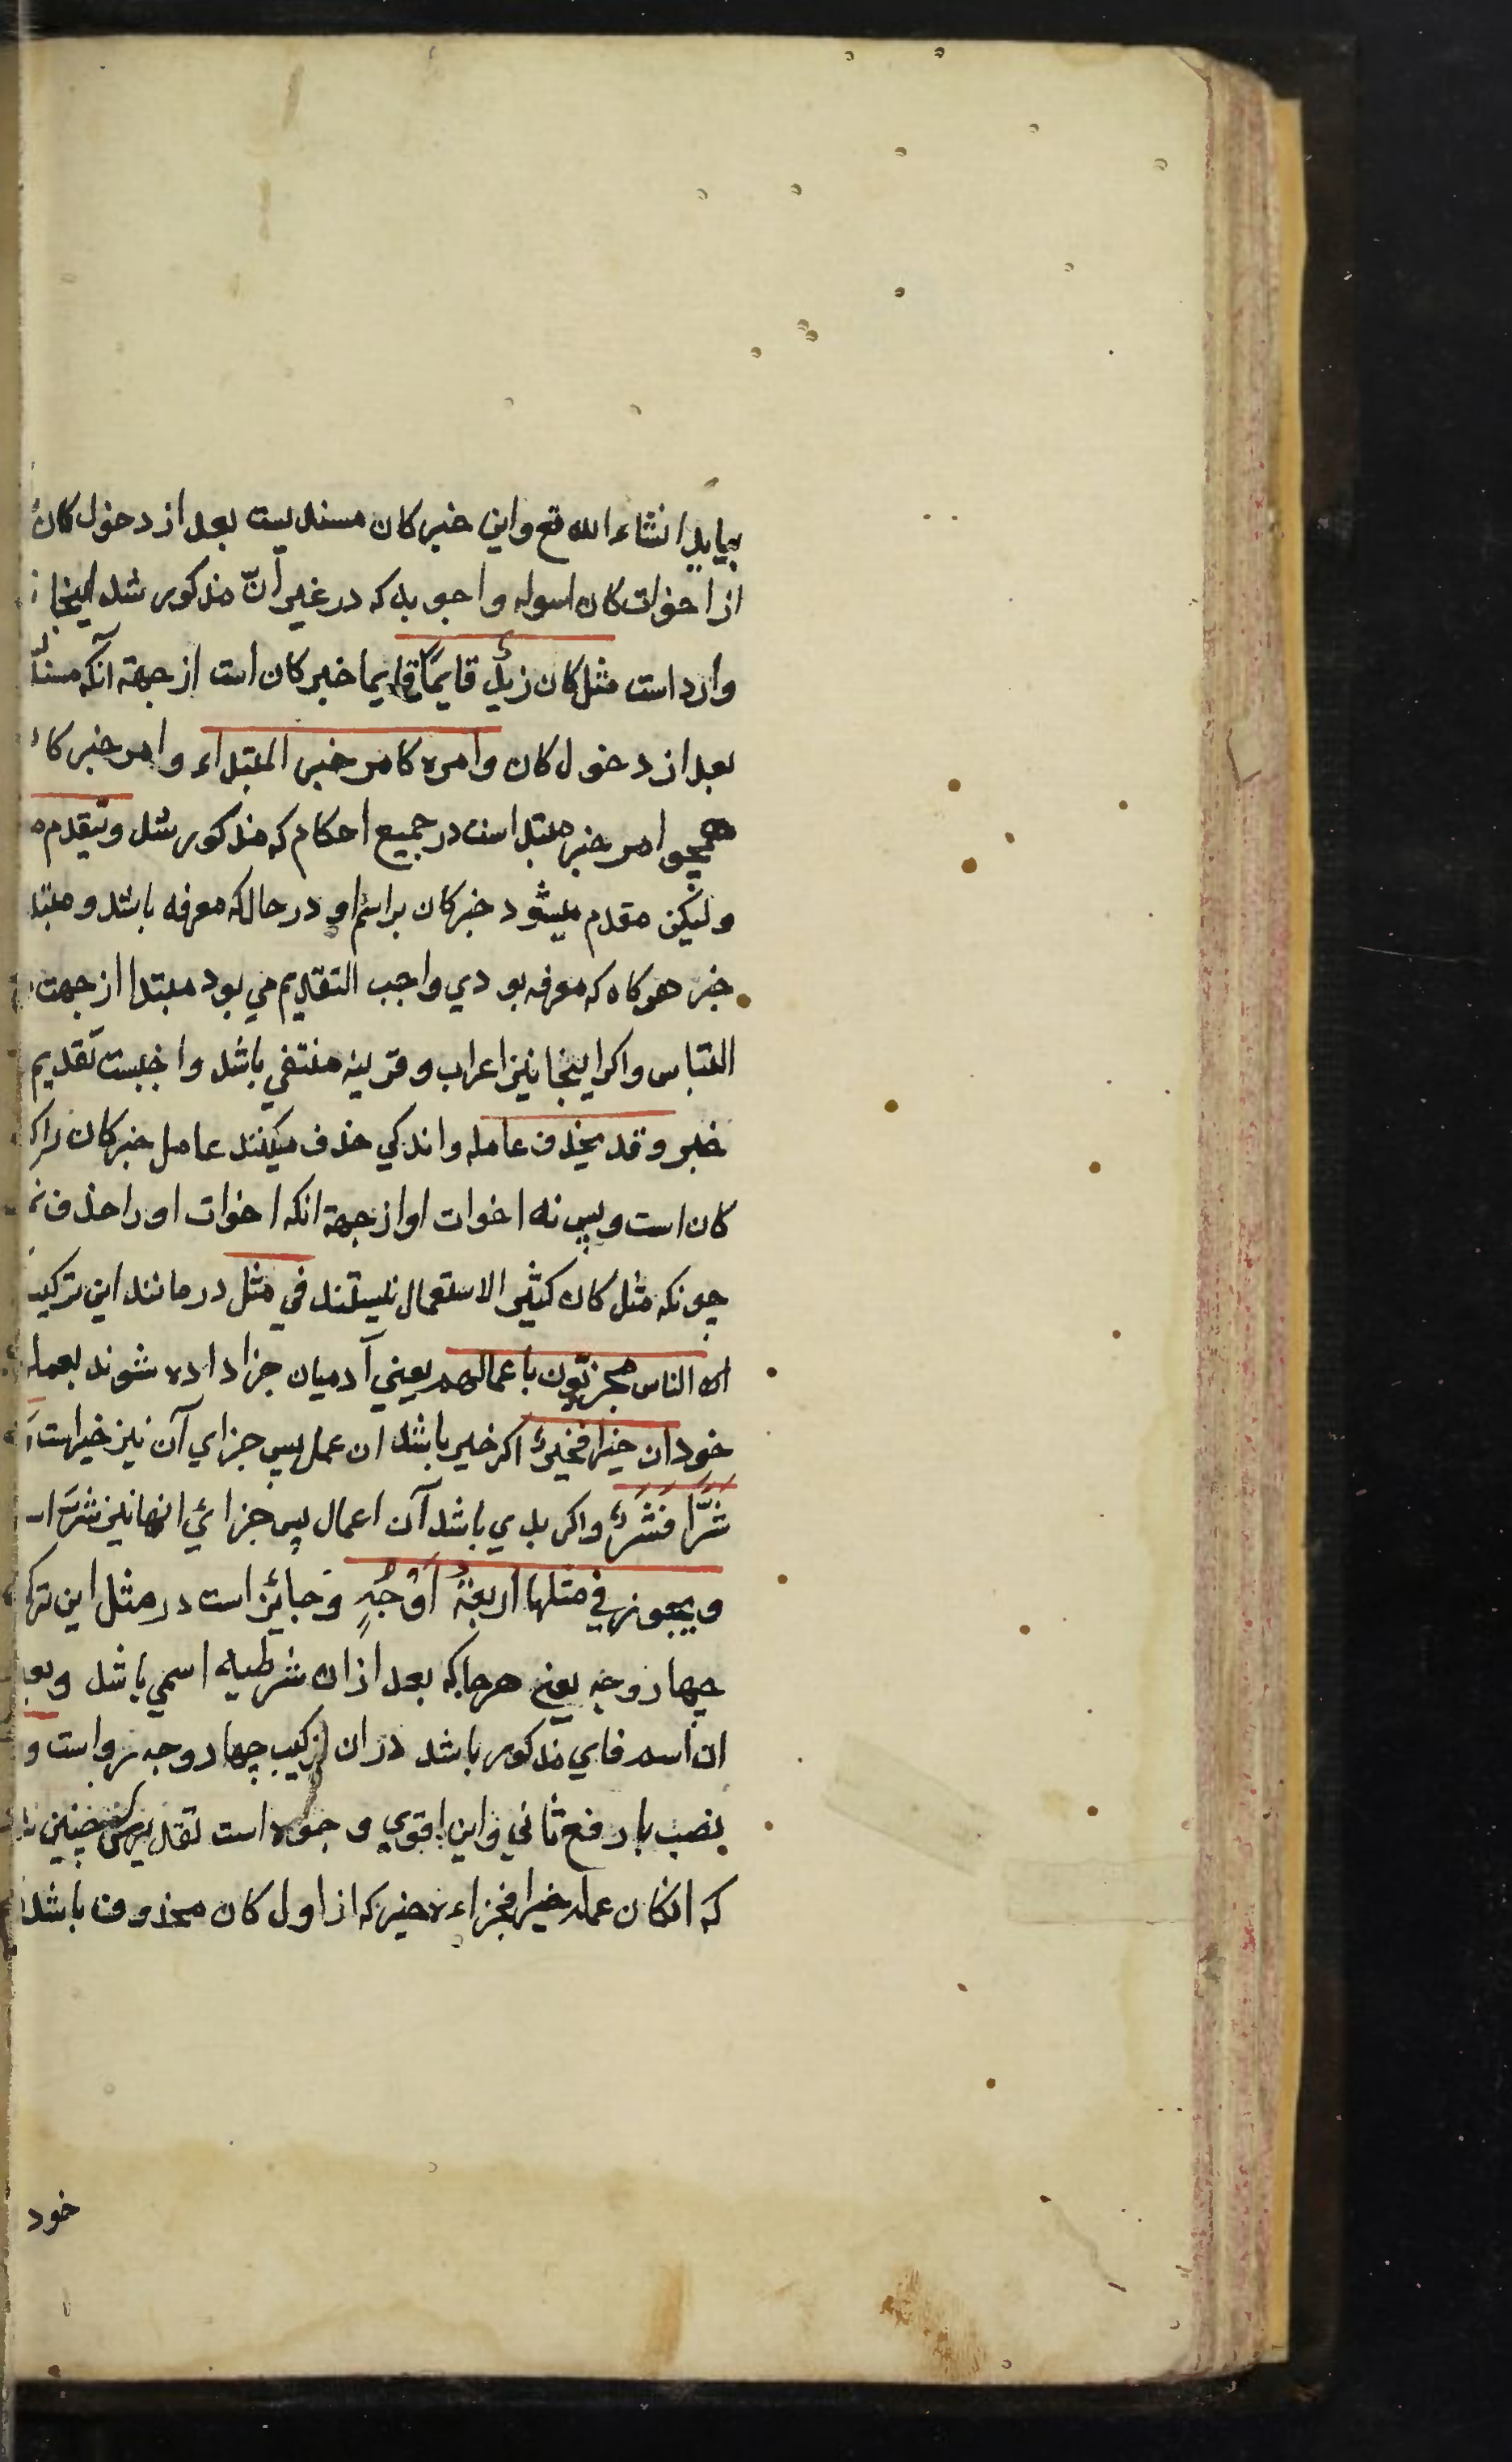 بیاید انشاء الله تع واین خبر کان مسندلیست بعد از دخول کان
از اخوات کان اسوله واجوبه که در غیر انّ مذکور شد اینجا
وارد است مثل کان زیدٌ قایمًا قایما خبر کان است از جهة آنکه مسند
بعد از دخول کان وامره کامر خبر المبتداء وامر خبر کا
همچو امر خبر مبتداست در جمیع احکام که مذکور شد ویتقدم
ولیکن مقدم میشود خبر کان بر اسم او در حالکه معرفه باشد ومبتد
خبر هرکاه که معرفه بودی واجب التقدیم می بود مبتدا از جهت
التباس واکر اینجا نیز اعراب وقرینه منتفی باشد واجبست تقدیم
خبر وقد یحذف عامله واندکی حذف میکنند عامل خبر کان را که
کان است وبس نه اخوات او از جهة انکه اخوات او را حذف نم
چونکه مثل کان کثیر الاستعمال نیستند فی مثل در مانند این ترکیب
ان الناس مجزیّون باعمالهم یعنی آدمیان جزا داده شوند بعمل
خود ان خیرا فخیرٌ اکر خیر باشد ان عمل پس جزای آن نیز خیر است
شرًّا فشرٌّ واکر بدی باشد آن اعمال پس جزائی انها نیز شرّ ا
ویجوز فی مثلها اربعةُ اَوْجُهٍ وجائز است در مثل این ترک
چهار وجه یعنی هرجا که بعد از ان شرطیه اسمی باشد وبع
ان اسم فای مذکور باشد در ان ترکیب چهار وجه رواست و
نصب با رفع ثانی واین اقوی وجوه است تقدیرش چنین
که انکان عمله خیرا فجزاءه خیر که از اول کان محذوف باشد
خود